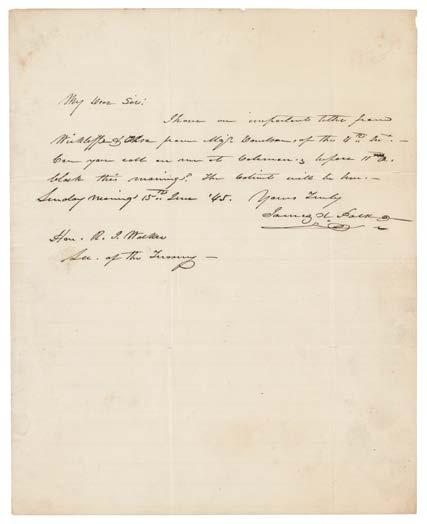 My Dear Sir:
I have an important letter from
Wickliffe & also from Majr. Donelson, of the 4th Inst. —
Can you call on me at Coleman's before 10
clock this morning? The Cabinet will be here. —
Sunday Morning 15th June '45. Yours Truly
James K. Polk
Hon. R. J. Walker
Sec. of the Treasury —